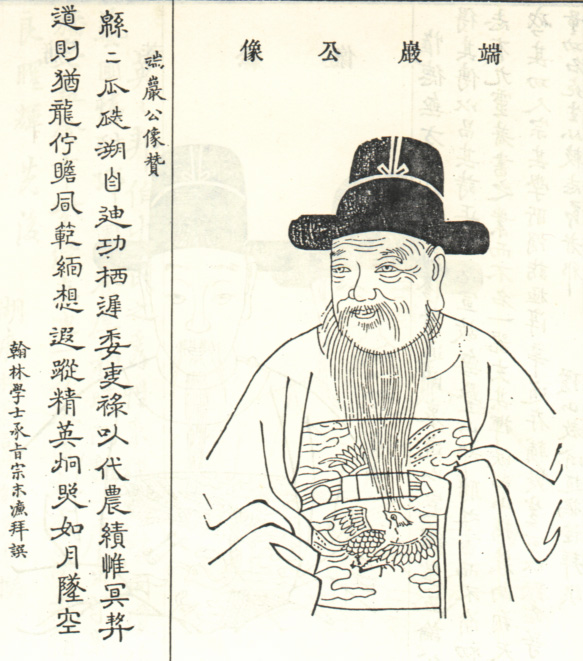 端巖公像
端巖公像贊
緜〻瓜瓞溯自迪功栖遲委吏祿以代農績惟冥契
道則猶龍佇瞻風範緬想遐蹤精英炯如月墜空
翰林學士承旨宗末濂拜譔